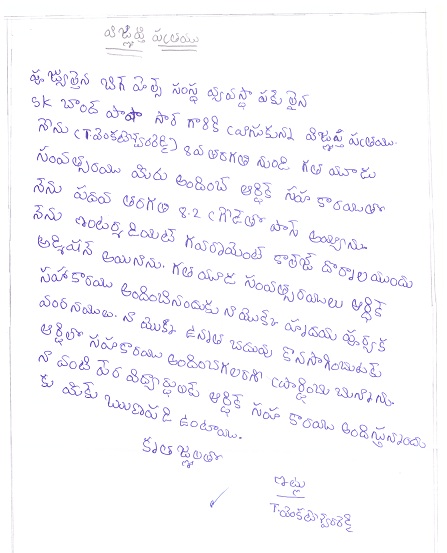 విజ్ఞప్తి పత్రము
పూజ్యులైన బిగ్ హెల్ప్ సంస్థ వ్యవస్థాపకులైన
SK బాంద్ పాషా సార్ గారికి వ్రాసుకున్న విజ్ఞప్తి పత్రము.
నేను (T.వెంకటేశ్వరరెడ్డి) 8వ తరగతి నుండి గత మూడు
సంవత్సరము మీరు అందించె ఆర్థిక సహకారముతో
నేను పదవ తరగతి 8.2 గ్రేడ్‌తో పాస్ అయ్యాను.
నేను ఇంటర్మీడియిట్ గవరామెంట్ కాలేజ్ దోర్నాలయందు
అడ్మిషన్ అయినాను. గత మూడు సంవత్సరములు ఆర్థిక
సహకారము అందించినందుకు నా యొక్క హృదయ పూర్వక
వందనములు. నా యొక్క ఉన్నత చదువు కొనసాగించుటకు
ఆర్థిక సహకారము అందించగలరని ప్రార్థించుచున్నాను.
నా వంటి పేద విద్యార్థులకు ఆర్థిక సహకారము అందిస్తున్నందు
కు మీకు ఋణపడి ఉంటాము.
కృతజ్ఞతలతో
ఇట్లు
T.వెంకటేశ్వరరెడ్డి